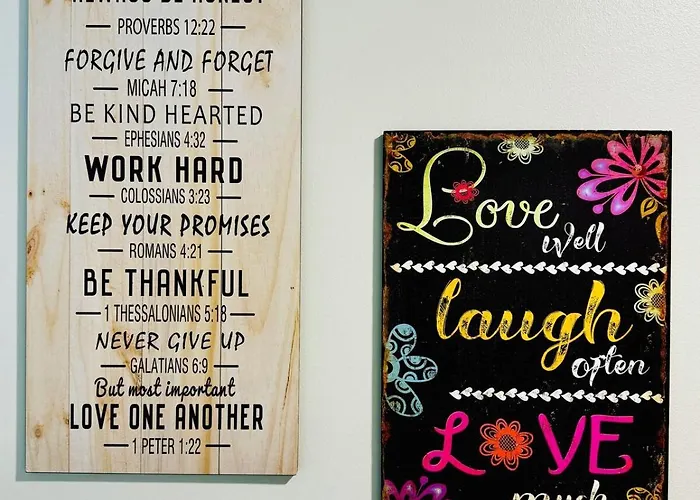 ALWAYS BE HONEST
PROVERBS 12:22
FORGIVE AND FORGET
MICAH 7:18
BE KIND HEARTED
EPHESIANS 4:32
WORK HARD
COLOSSIANS 3:23
KEEP YOUR PROMISES
ROMANS 4:21
BE THANKFUL
1 THESSALONIANS 5:18
NEVER GIVE UP
GALATIANS 6:9
But most important
LOVE ONE ANOTHER
1 PETER 1:22
Love
Well
laugh
often
LOVE
much